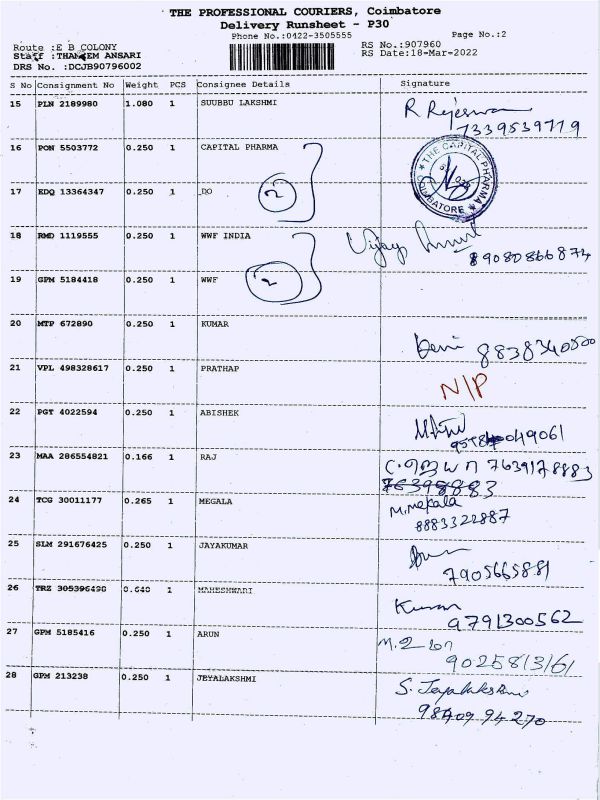 THE PROFESSIONAL COURIERS, Coimbatore
Delivery Runsheet - P30
Phone No.:0422-3505555 Page No.:2
Route :E B COLONY RS No.:907960
Staff :THAMEEM ANSARI RS Date:18-Mar-2022
DRS No. :DCJB90796002
S No Consignment No Weight PCS Consignee Details Signature
15 PLN 2189980 1.080 1 SUUBBU LAKSHMI R Rajeswari
7339539779
16 PON 5503772 0.250 1 CAPITAL PHARMA
THE CAPITAL PHARMA
COIMBATORE
17 EDQ 13364347 0.250 1 DO 2
18 RMD 1119555 0.250 1 WWF INDIA Vijay
89080866874
19 GPM 5184418 0.250 1 WWF 2
20 MTP 672890 0.250 1 KUMAR Devi 8838340500
21 VPL 498328617 0.250 1 PRATHAP N/P
22 PGT 4022594 0.250 1 ABISHEK
23 MAA 286554821 0.166 1 RAJ 7639178883
24 TCG 30011177 0.265 1 MEGALA M.mekala
8883322887
25 SLM 291676425 0.250 1 JAYAKUMAR
7905665881
26 TRZ 305396498 0.640 1 MAHESHWARI Kumar
9791300562
27 GPM 5185416 0.250 1 ARUN
9025813161
28 GPM 213238 0.250 1 JEYALAKSHMI S. Jeyalakshmi